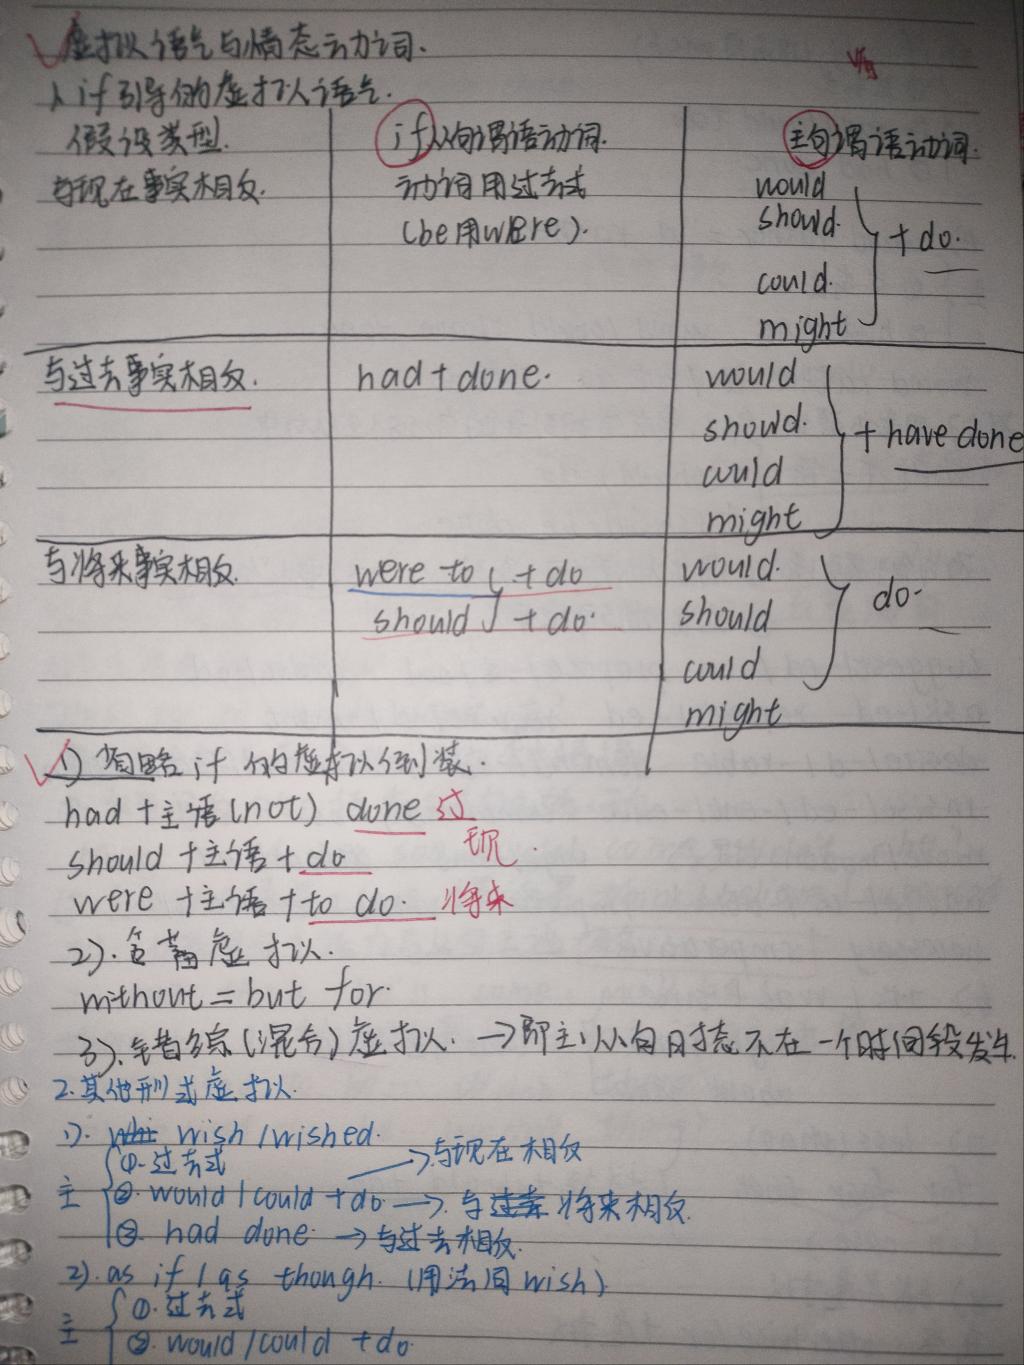 虚拟语气与情态动词.
1. if引导的虚拟语气.
假设类型. if从句谓语动词. 主句谓语动词.
与现在事实相反. 动词用过去式 would
(be用were). should. + do.
could.
might
与过去事实相反. had + done. would
should. + have done
could
might
与将来事实相反. were to + do would.
should + do. should do.
could
might
1) 省略 if 的虚拟倒装.
had + 主语(not) done 过
should + 主语 + do 现.
were + 主语 + to do. 将来
2). 含蓄虚拟.
without = but for.
3). 错综(混合)虚拟. → 即主从句时态不在一个时间段发生.
2. 其他形式虚拟.
1). wish / wished.
①. 过去式 → 与现在相反
主 ②. would / could + do. → 与将来相反.
③. had done. → 与过去相反.
2). as if / as though. (用法同wish)
①. 过去式
主 ②. would / could + do.